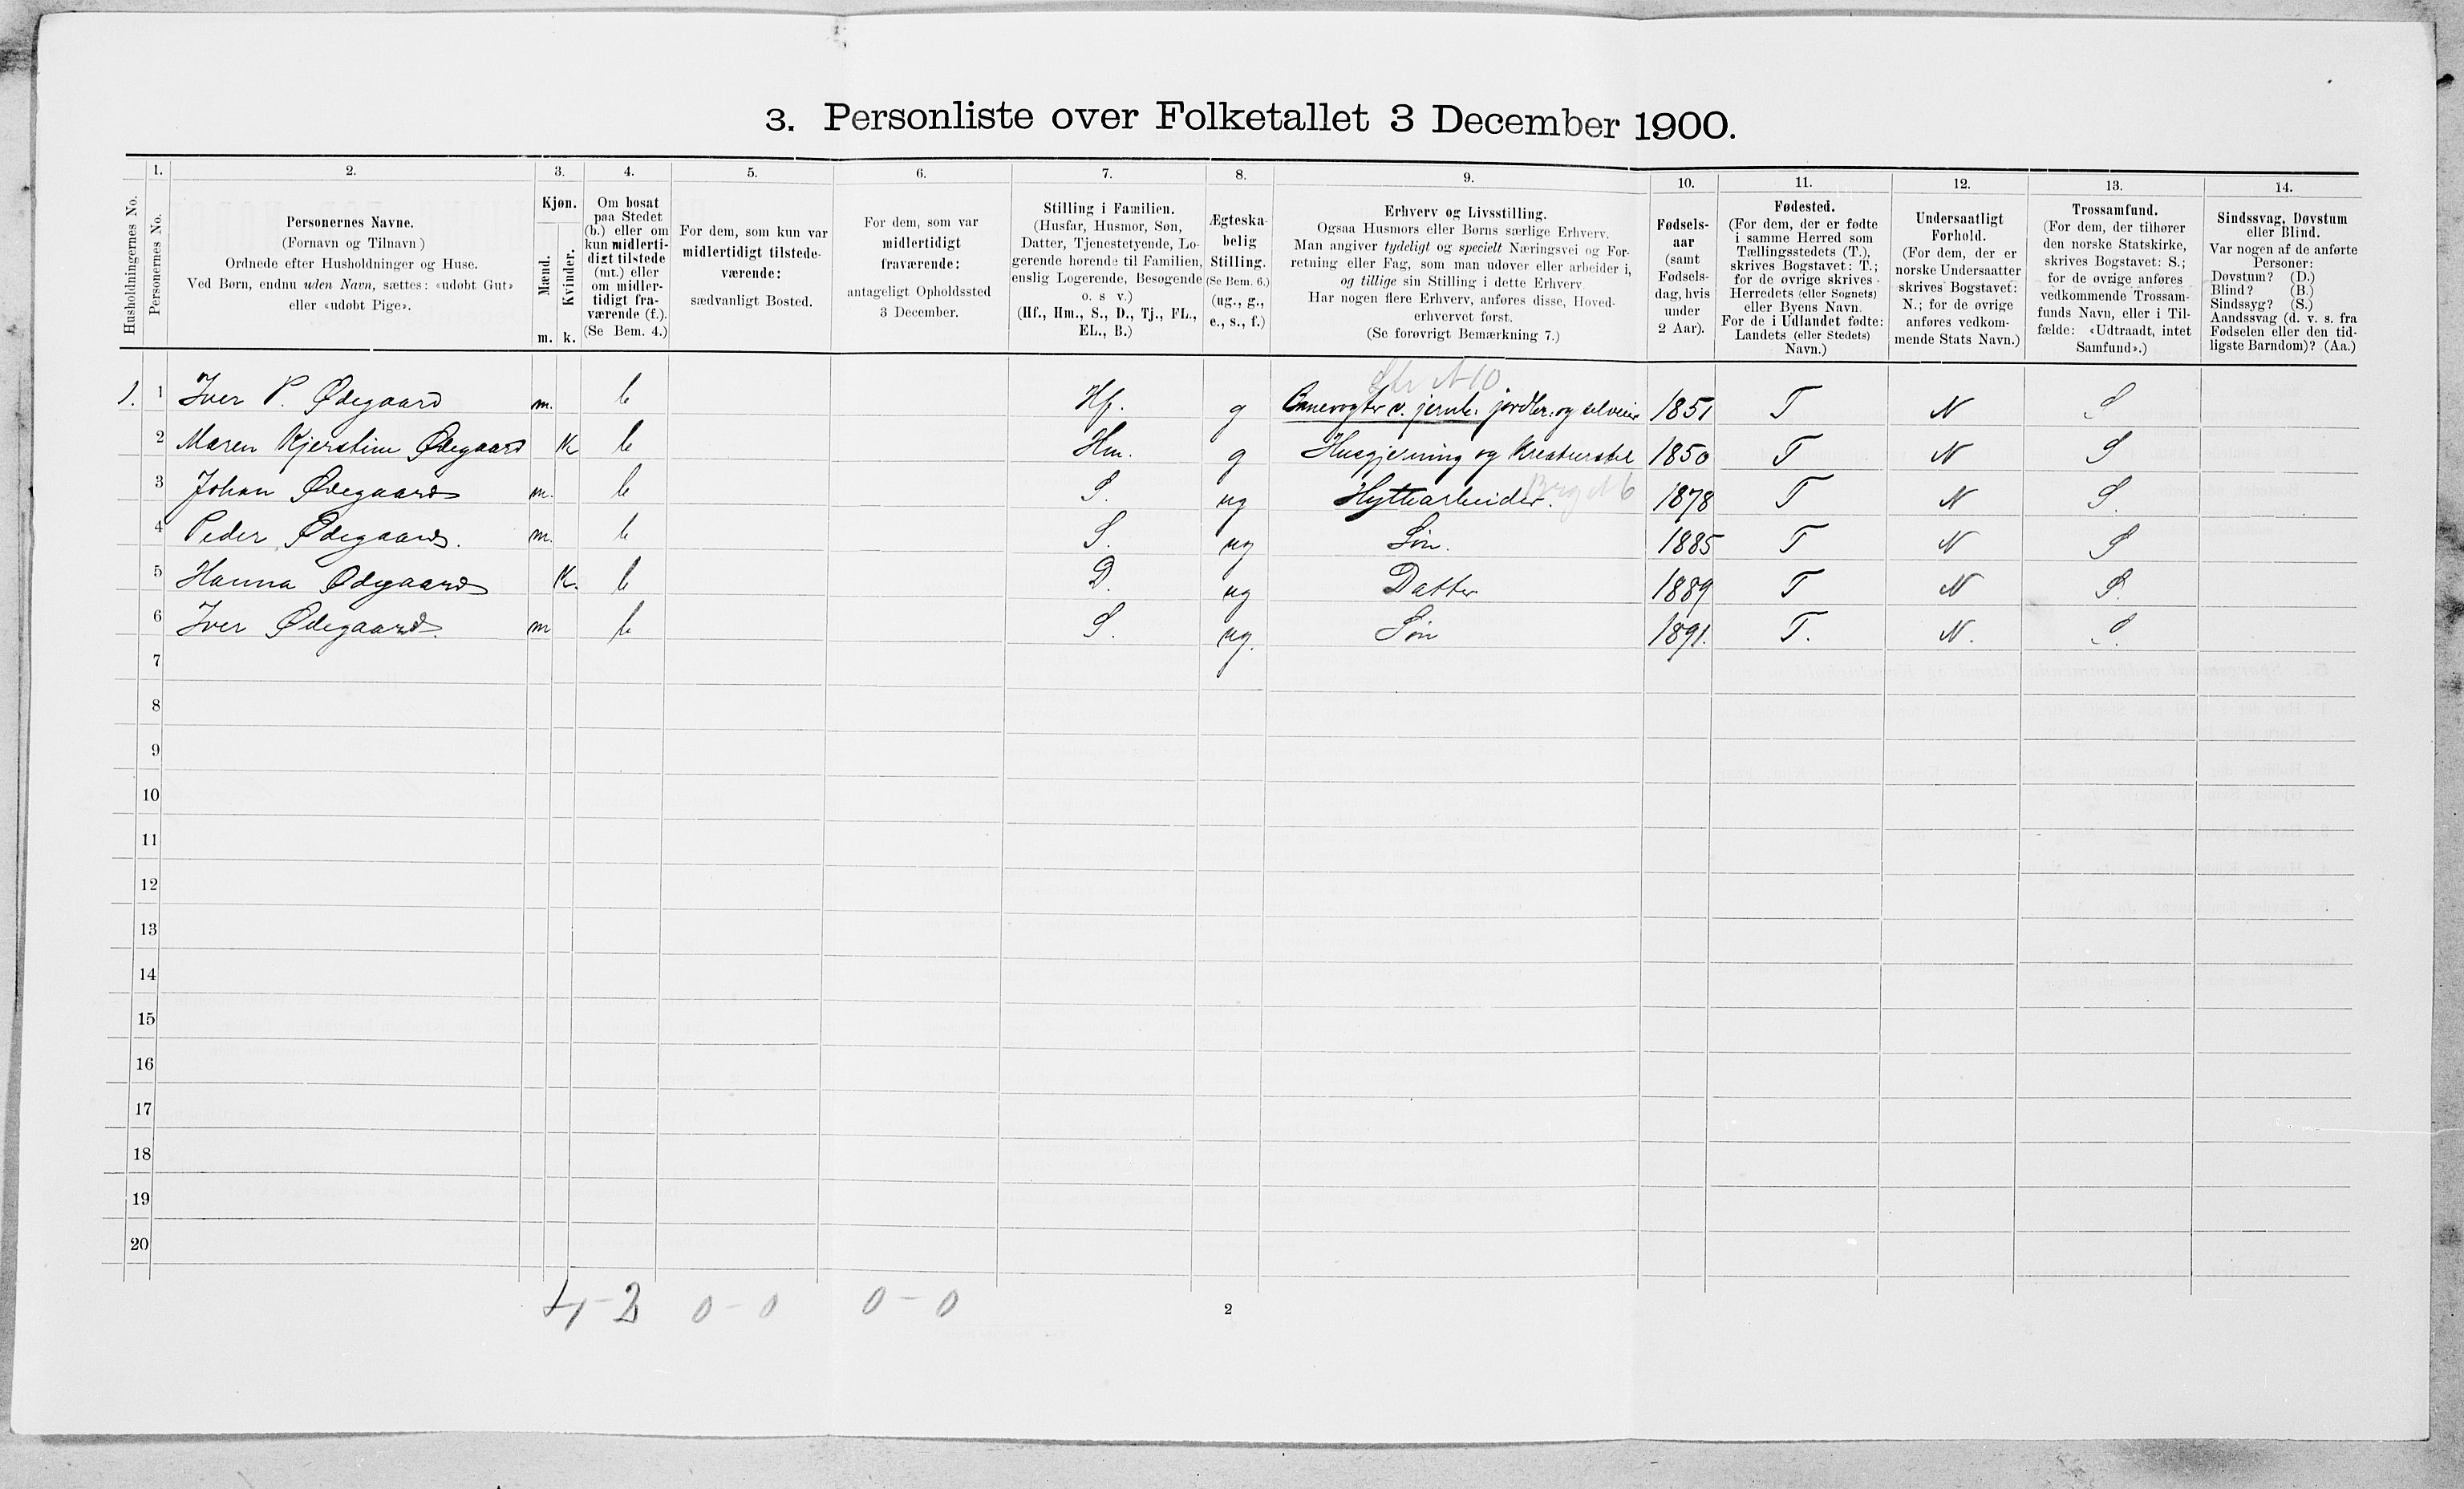 3. Personliste over Folketallet 3 December 1900.
Husholdningernes No.
1.
Personernes No.
2.
Personernes Navne.
(Fornavn og Tilnavn)
Ordnede efter Husholdninger og Huse.
Ved Børn, endnu uden Navn, sættes: «udøbt Gut»
eller «udøbt Pige».
3.
Kjøn.
Mænd.
Kvinder.
m. k.
4.
Om bosat
paa Stedet
(b.) eller om
kun midlerti-
digt tilstede
(mt.) eller
om midler-
tidigt fra-
værende (f.).
(Se Bem. 4.)
5.
For dem, som kun var
midlertidigt tilstede-
værende:
sædvanligt Bosted.
6.
For dem, som var
midlertidigt
fraværende:
antageligt Opholdssted
3 December.
7.
Stilling i Familien.
(Husfar, Husmor, Søn,
Datter, Tjenestetyende, Lo-
gerende hørende til Familien,
enslig Logerende, Besøgende
o. s v.)
(Hf., Hm., S., D., Tj., FL.,
EL., B.)
8.
Ægteska-
belig
Stilling.
(Se Bem. 6.)
(ug., g.,
e., s., f.)
9.
Erhverv og Livsstilling.
Ogsaa Husmors eller Børns særlige Erhverv.
Man angiver tydeligt og specielt Næringsvei og For-
retning eller Fag, som man udøver eller arbeider i,
og tillige sin Stilling i dette Erhverv.
Har nogen flere Erhverv, anføres disse, Hoved-
erhvervet først.
(Se forøvrigt Bemærkning 7.)
10.
Fødsels-
aar
(samt
Fødsels-
dag, hvis
under
2 Aar).
11.
Fødested.
(For dem, der er fødte
i samme Herred som
Tællingsstedets (T.),
skrives Bogstavet: T.;
for de øvrige skrives
Herredets (eller Sognets)
eller Byens Navn.
For de i Udlandet fødte:
Landets (eller Stedets)
Navn.)
12.
Undersaatligt
Forhold.
(For dem, der er
norske Undersaatter
skrives Bogstavet:
N.; for de øvrige
anføres vedkom-
mende Stats Navn.)
13.
Trossamfund.
(For dem, der tilhører
den norske Statskirke,
skrives Bogstavet: S.;
for de øvrige anføres
vedkommende Trossam-
funds Navn, eller i Til-
fælde: «Udtraadt, intet
Samfund».)
14.
Sindssvag, Døvstum
eller Blind.
Var nogen af de anførte
Personer:
Døvstum? (D.)
Blind? (B.)
Sindssyg? (S.)
Aandssvag (d. v. s. fra
Fødselen eller den tid-
ligste Barndom)? (Aa.)
N 10
1. 1 Iver P. Ødegaard m. b Hf. g Banevogter v. jernb. jordbr. og selveier 1851 T N S
2 Maren Kjerstine Ødegaard K b Hm. g Husgjerning og Kreaturstel 1850 T N S
3 Johan Ødegaard m. b S. ug Hyttearbeider. Brg N 6 1878 T N S.
4 Peder Ødegaard. m. b S. ug Søn. 1885 T N S
5 Hanna Ødegaard K. b D. ug Datter 1889 T N S.
6 Iver Ødegaard. m b S. ug. Søn 1891. T. N. S.
7
8
9
10
11
12
13
14
15
16
17
18
19
20
4-2 0-0 0-0
2